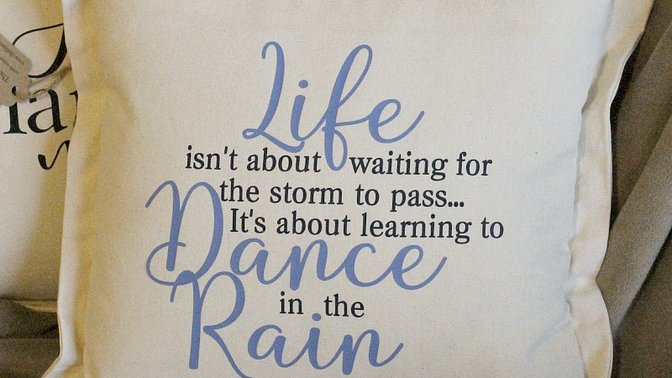 Life
isn't about waiting for
the storm to pass...
It's about learning to
Dance
in the
Rain